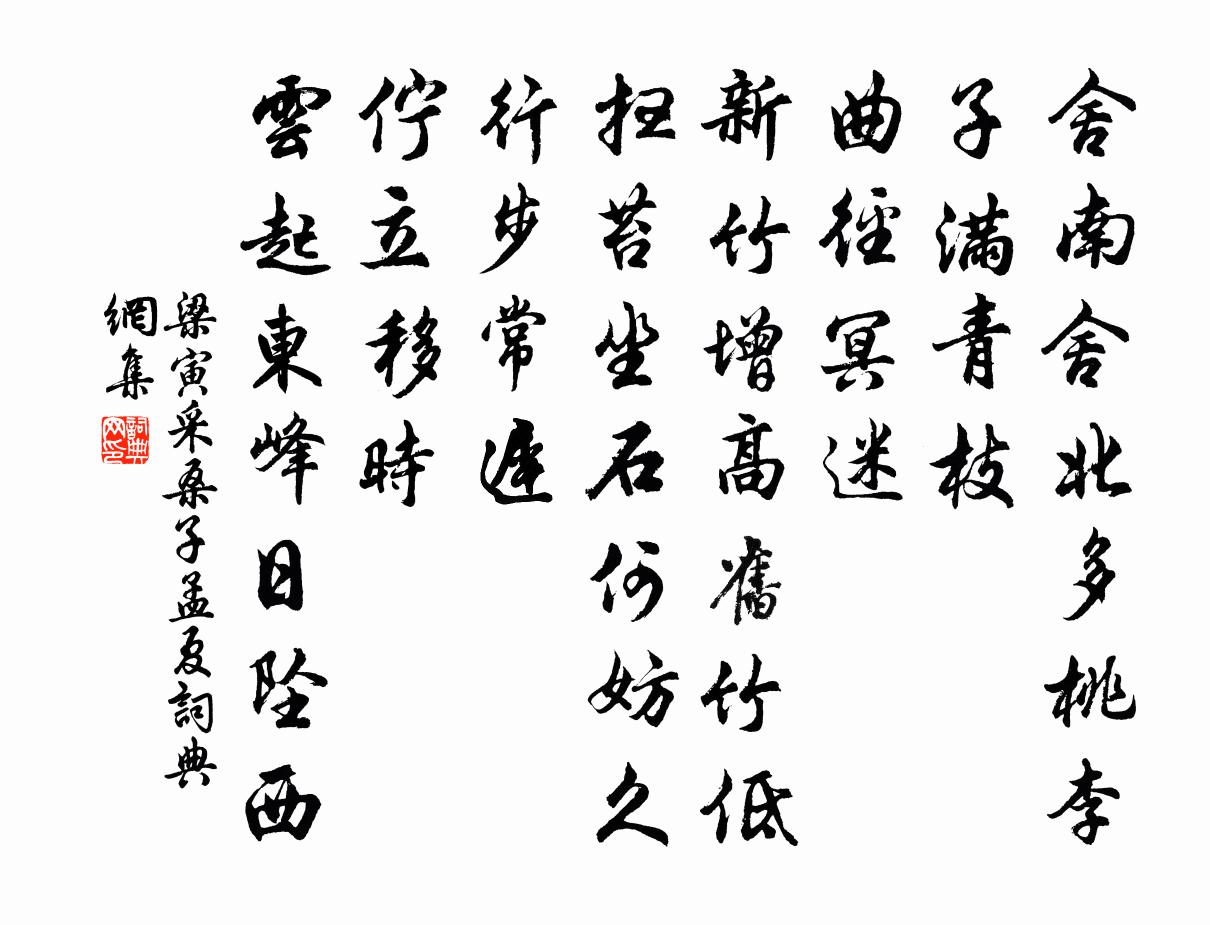 舍南舍北多桃李
子滿青枝
曲徑冥迷
新竹增高舊竹低
掃苔坐石何妨久
行步常遲
佇立移時
雲起東峰日墜西
梁寅采桑子孟夏詞典
網集
詞典網印